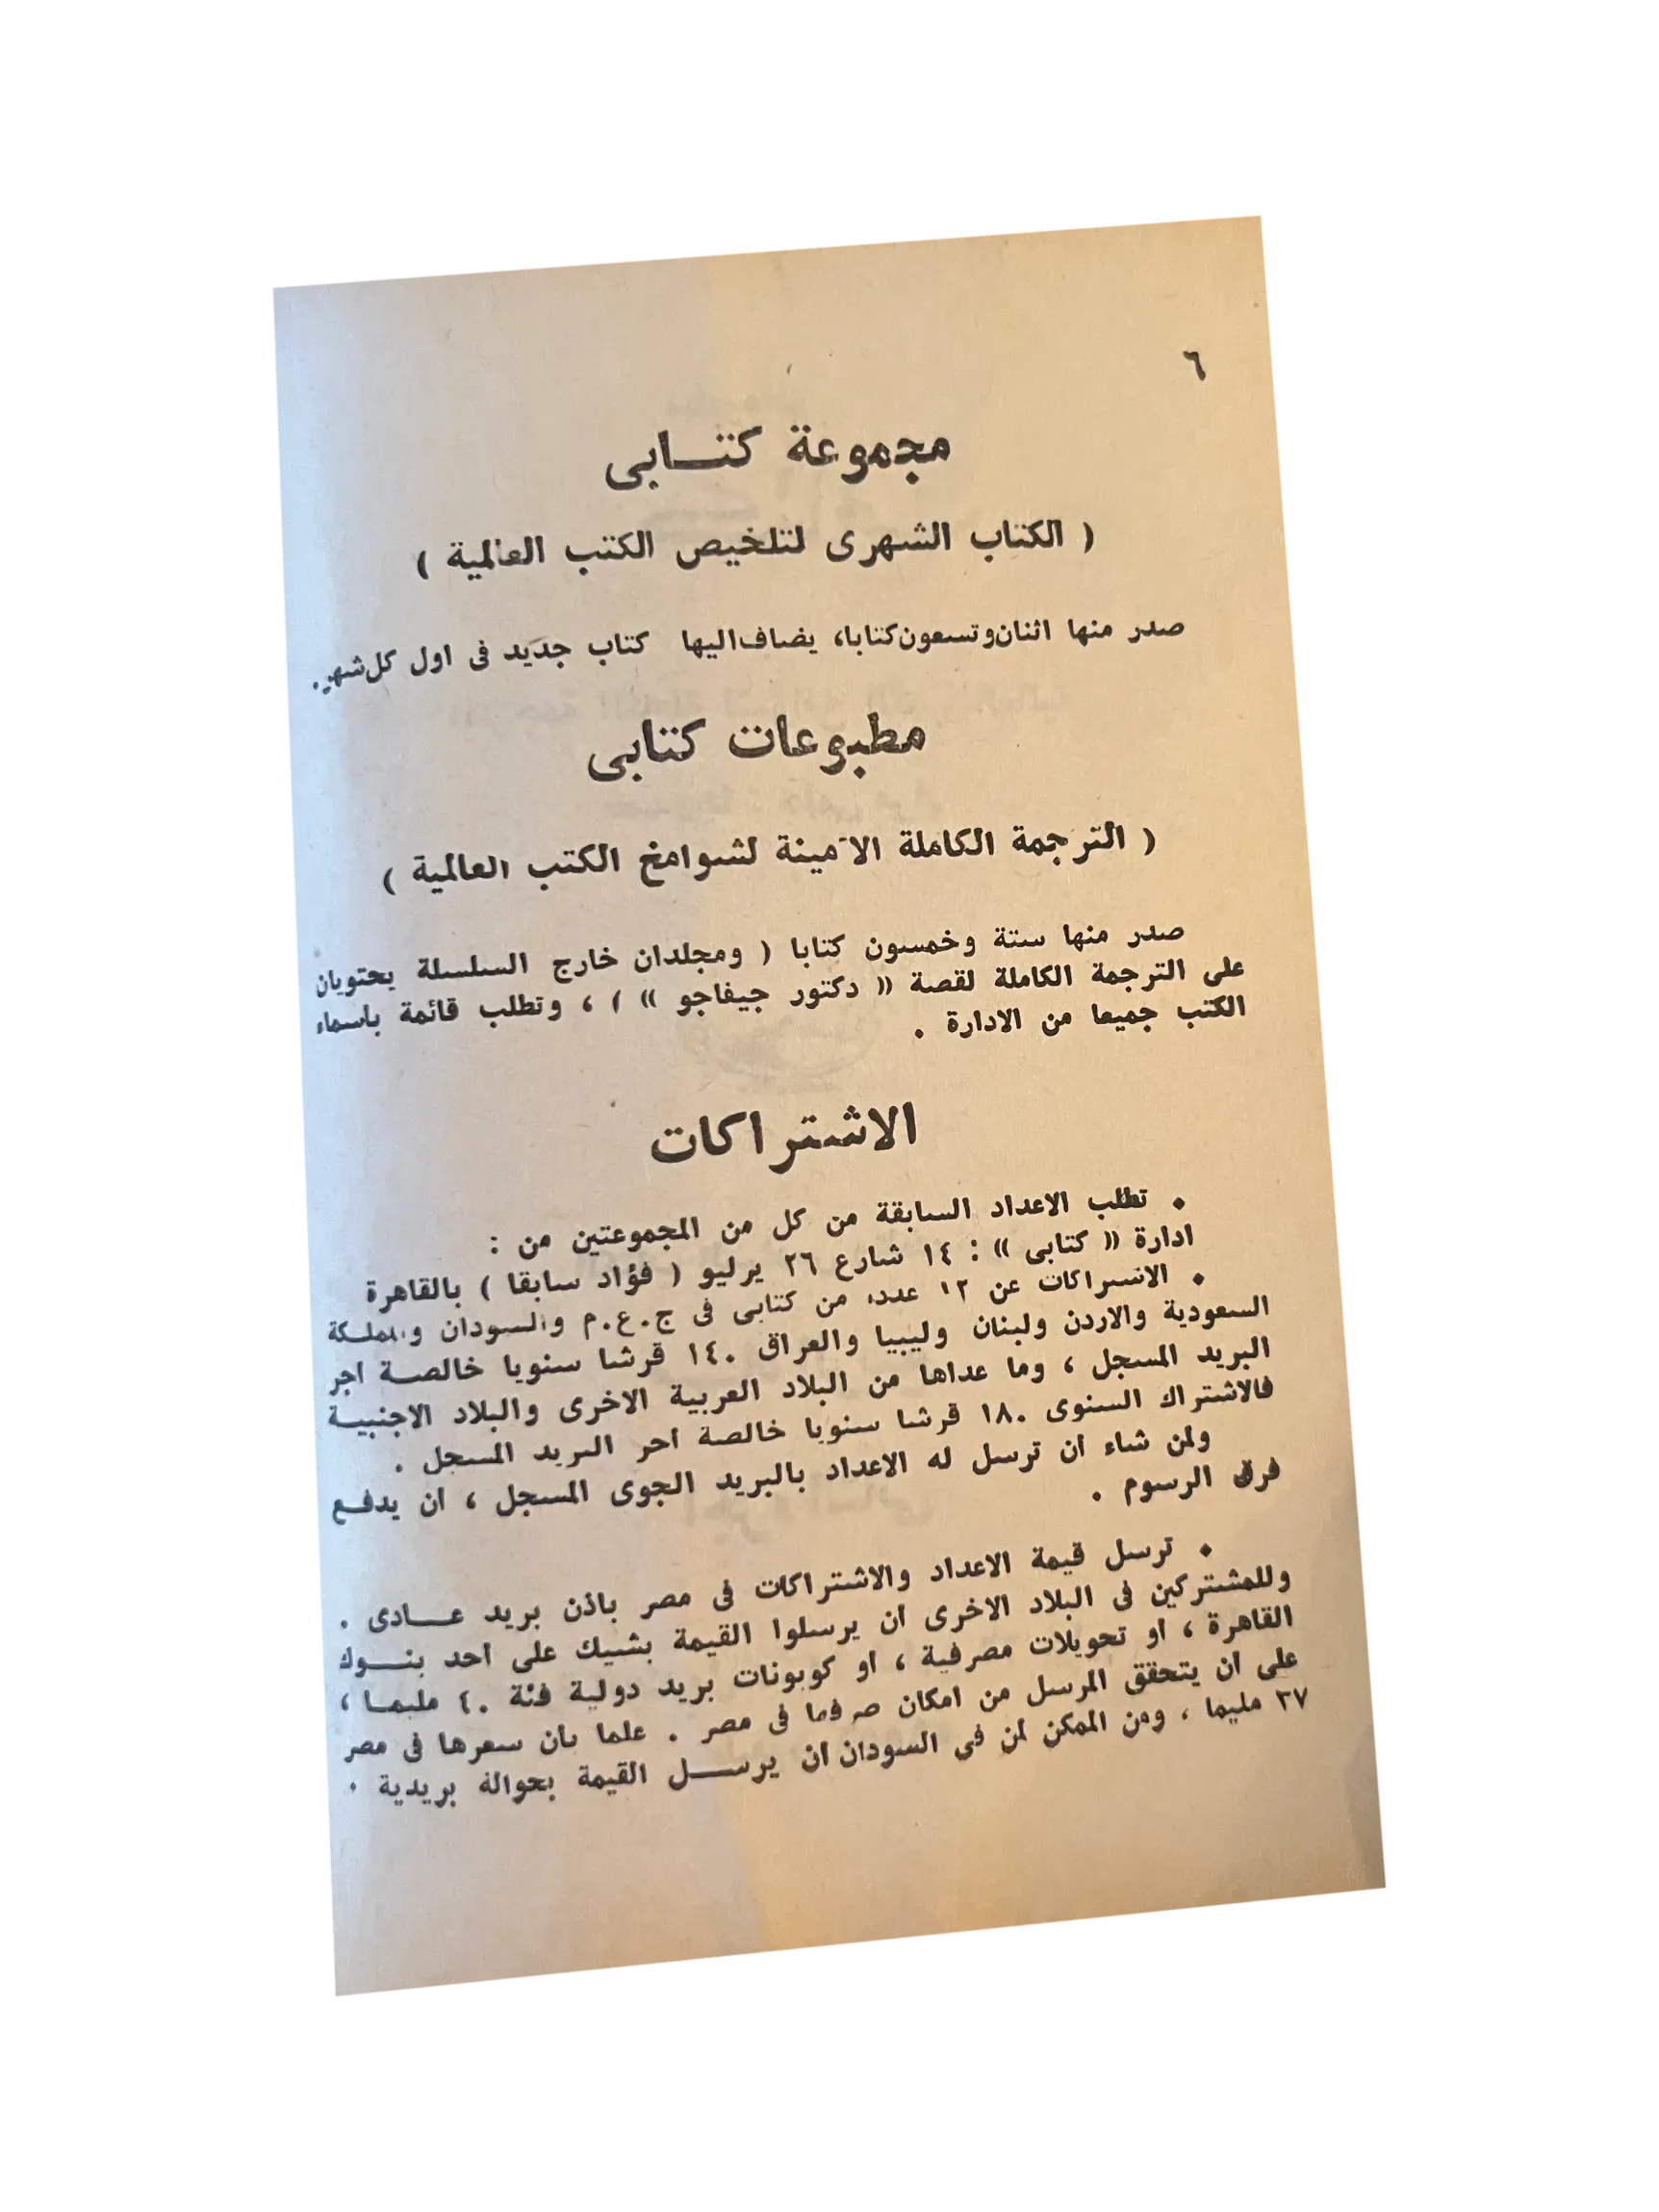 ٦
مجموعة كتـــابى
( الكتاب الشهرى لتلخيص الكتب العالمية )
صدر منها اثنان وتسعون كتابا، يضاف اليها كتاب جديد فى اول كل شهر .
مطبوعات كتابى
( الترجمة الكاملة الامينة لشوامخ الكتب العالمية )
صدر منها ستة وخمسون كتابا ( ومجلدان خارج السلسلة يحتويان
على الترجمة الكاملة لقصة « دكتور جيفاجو » ) ، وتطلب قائمة باسماء
الكتب جميعا من الادارة .
الاشتراكات
• تطلب الاعداد السابقة من كل من المجموعتين من :
ادارة « كتابى » : ١٤ شارع ٢٦ يوليو ( فؤاد سابقا ) بالقاهرة
• الاشتراكات عن ١٢ عددا من كتابى فى ج.ع.م والسودان والمملـكة
السعودية والاردن ولبنان وليبيا والعراق ١٤٠ قرشا سنويا خالصـة اجر
البريد المسجل ، وما عداها من البلاد العربية الاخرى والبلاد الاجنبيـة
فالاشتراك السنوى ١٨٠ قرشا سنويا خالصة اجر البريد المسجل .
ولمن شاء ان ترسل له الاعداد بالبريد الجوى المسجل ، ان يدفـع
فرق الرسوم .
• ترسل قيمة الاعداد والاشتراكات فى مصر باذن بريد عـــادى .
وللمشتركين فى البلاد الاخرى ان يرسلوا القيمة بشيك على احد بنــوك
القاهرة ، او تحويلات مصرفية ، او كوبونات بريد دولية فئة ٤٠ مليما ،
على ان يتحقق المرسل من امكان صرفها فى مصر . علما بان سعرها فى مصر
٣٧ مليما ، ومن الممكن لمن فى السودان ان يرســـل القيمة بحوالة بريدية .